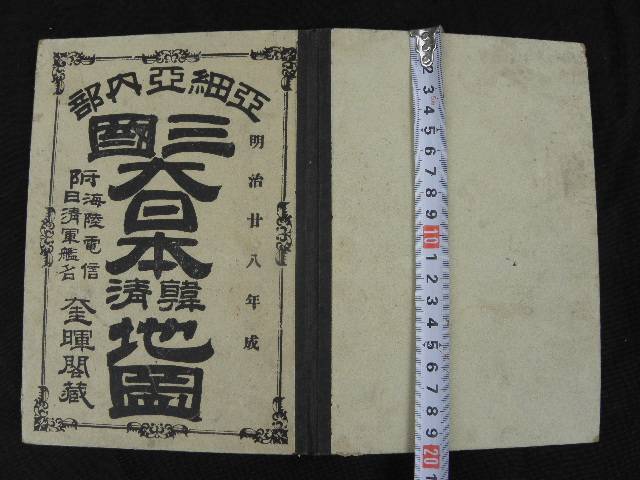 亞細亞內部
三國
大日本
韓清
地圖
明治廿八年成
附海陸電信
附日清軍艦名
奎暉閣藏
2
3
4
5
6
7
8
9
10
1
2
3
4
5
6
7
8
9
20